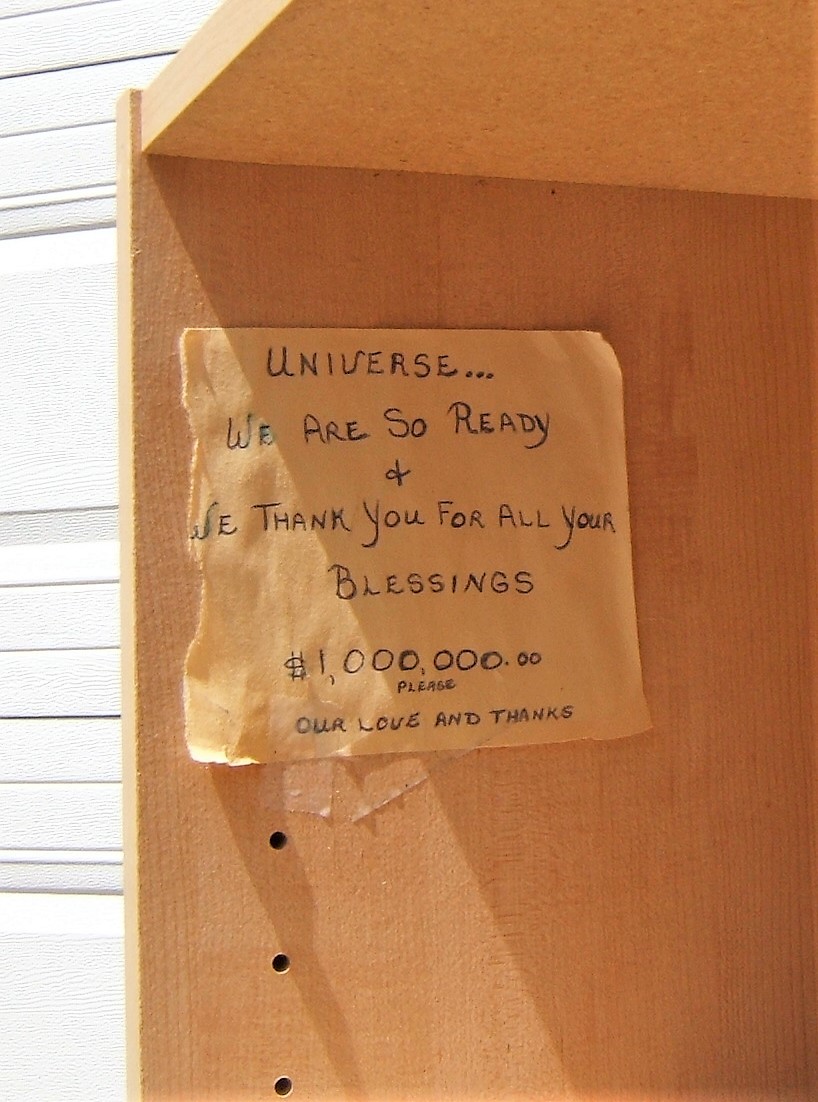 UNIVERSE...
WE ARE SO READY
&
WE THANK YOU FOR ALL YOUR
BLESSINGS
$1,000,000.00
PLEASE
OUR LOVE AND THANKS